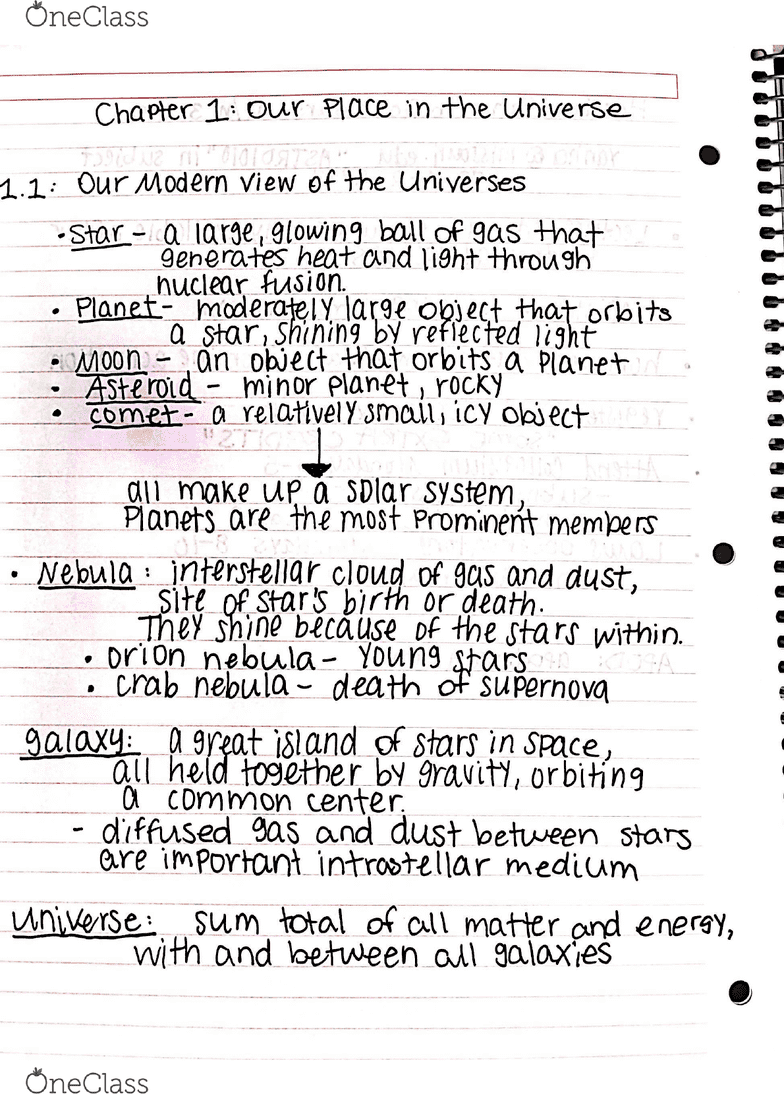 OneClass
Chapter 1: Our Place in the Universe
1.1: Our Modern view of the Universes
• Star - a large, glowing ball of gas that
generates heat and light through
nuclear fusion.
• Planet - moderately large object that orbits
a star, shining by reflected light
• Moon - an object that orbits a planet
• Asteroid - minor planet, rocky
• comet - a relatively small, icy object
all make up a solar system,
Planets are the most prominent members
• Nebula: interstellar cloud of gas and dust,
site of star's birth or death.
They shine because of the stars within.
• orion nebula - young stars
• crab nebula - death of supernova
galaxy: a great island of stars in space,
all held together by gravity, orbiting
a common center.
- diffused gas and dust between stars
are important introstellar medium
universe: sum total of all matter and energy,
with and between all galaxies
OneClass